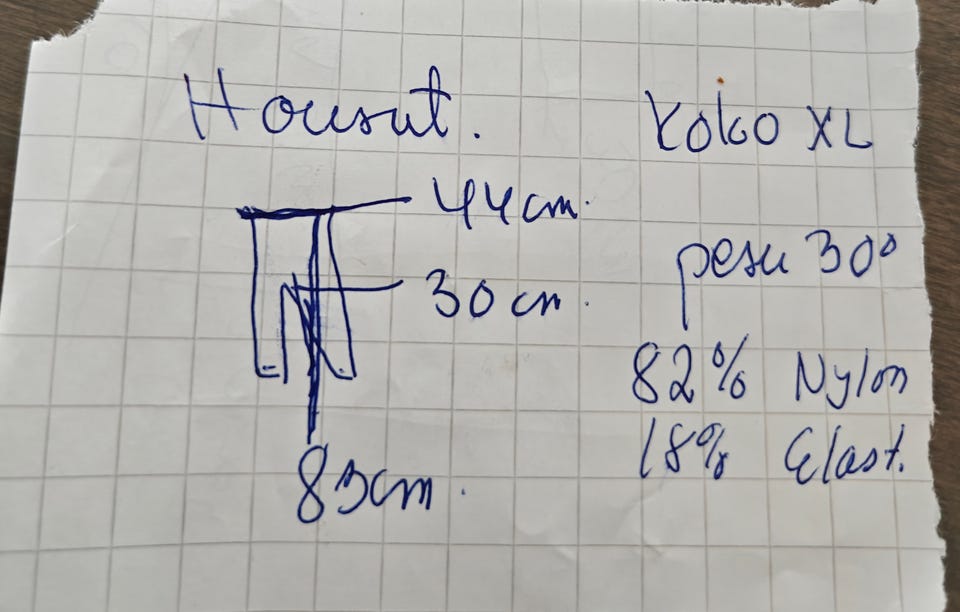 Housut.
Koko XL
44 cm.
pesu 30°
30 cm.
82% Nylon
18% Elast.
83cm.